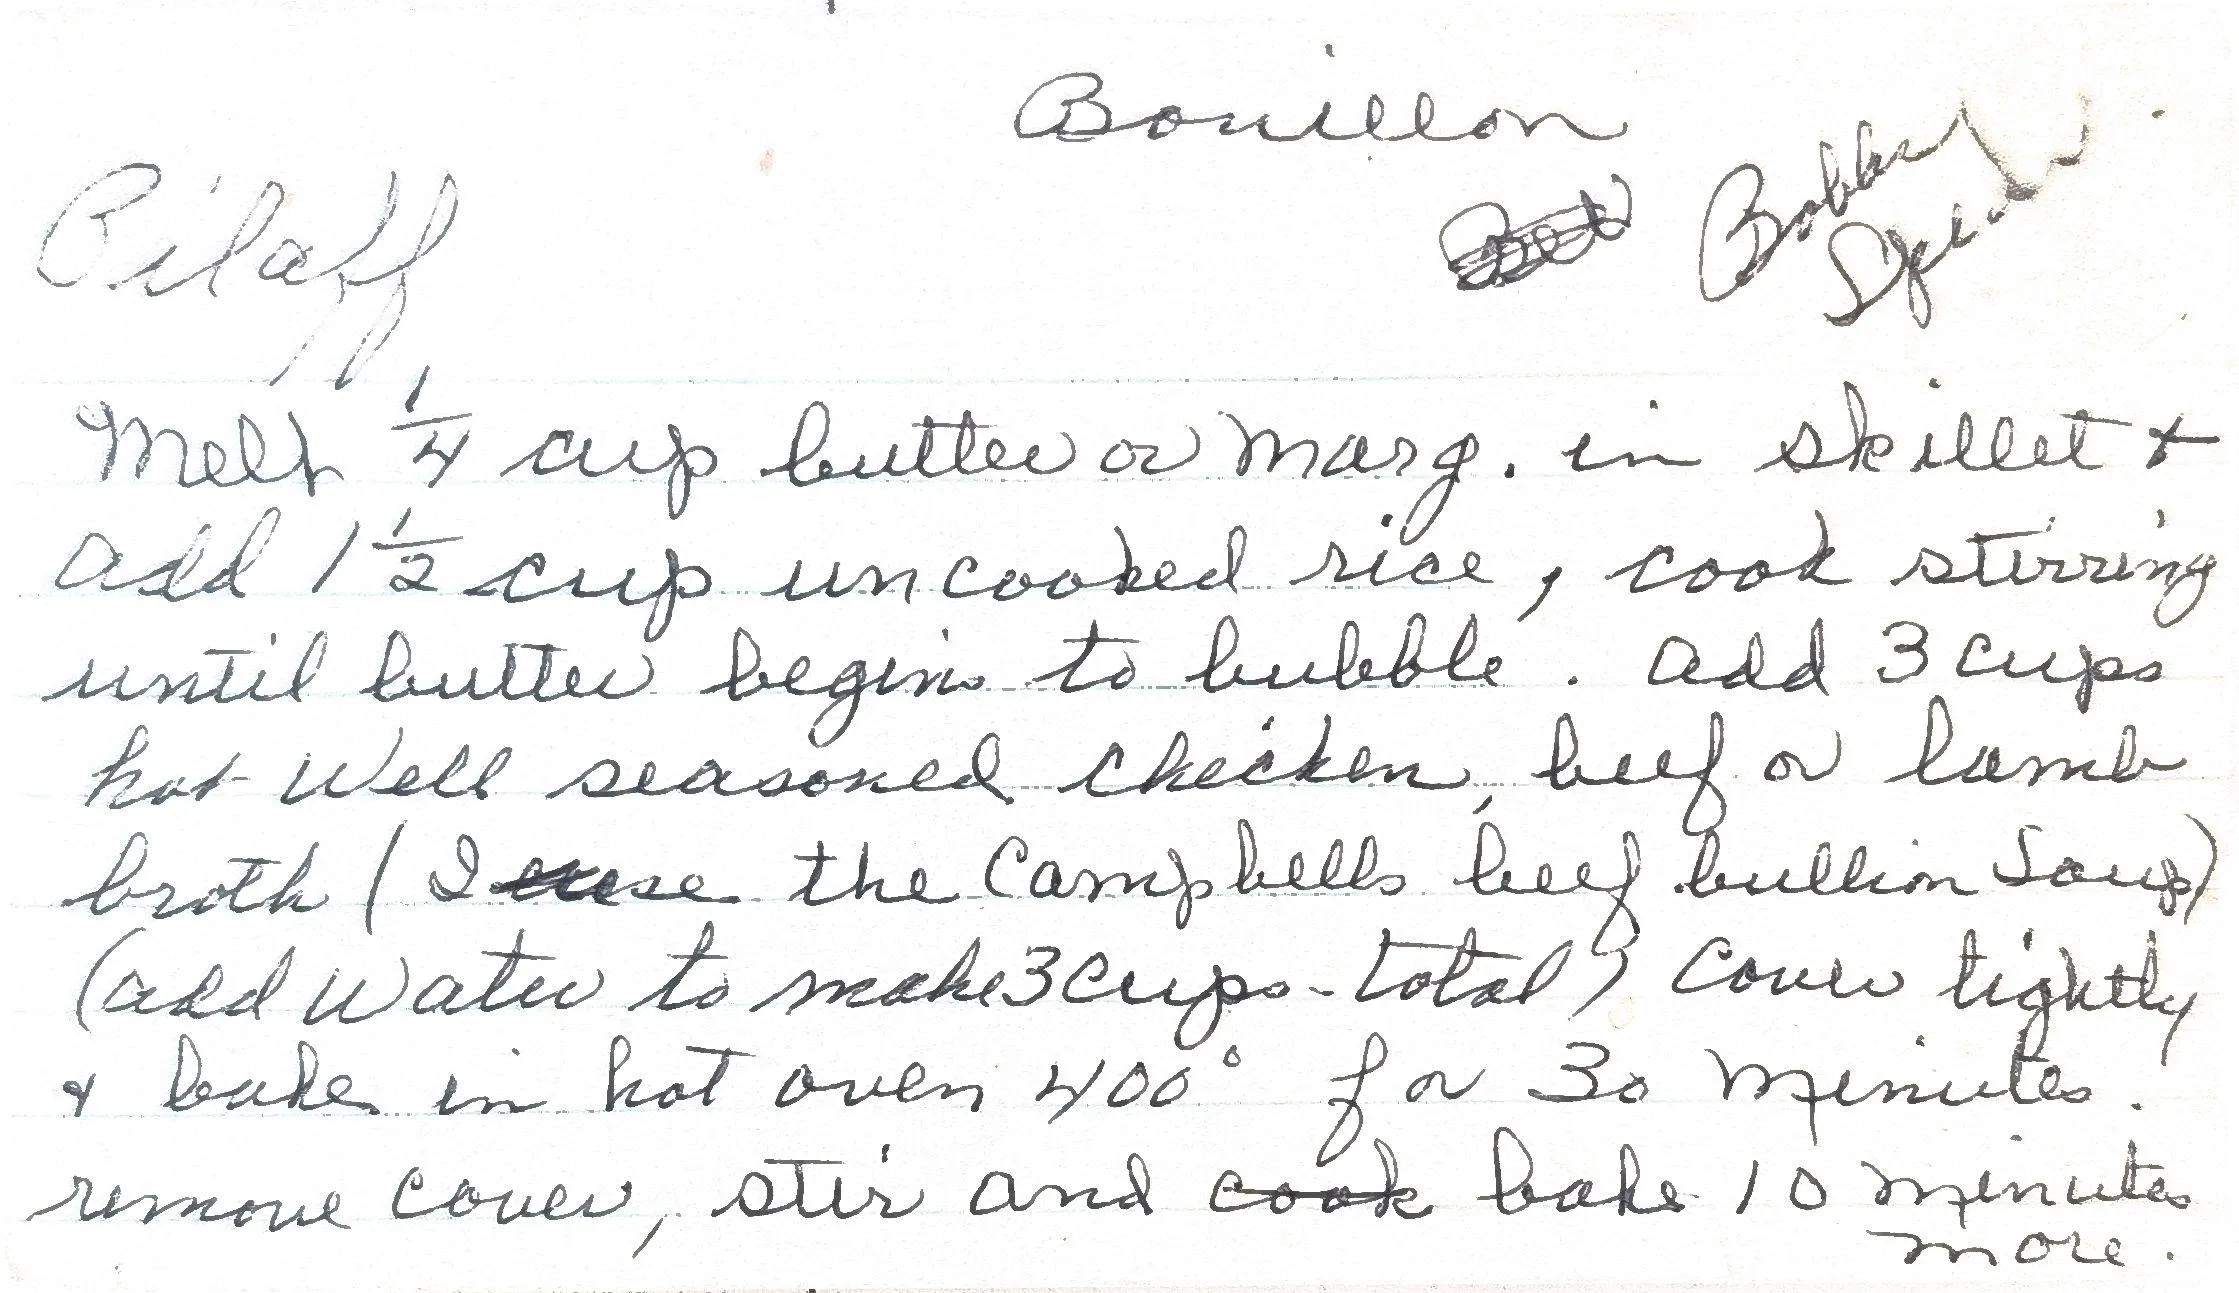 Bouillon
Pilaff
Bobbie
Melt 1/4 cup butter or marg. in skillet +
add 1 1/2 cup uncooked rice, cook stirring
until butter begins to bubble. add 3 cups
hot well seasoned chicken, beef or lamb
broth (I use the Campbells beef bullion Soup)
(add water to make 3 cups - total) cover tightly
+ bake in hot oven 400° for 30 minutes.
remove cover, stir and cook bake 10 minutes
more.